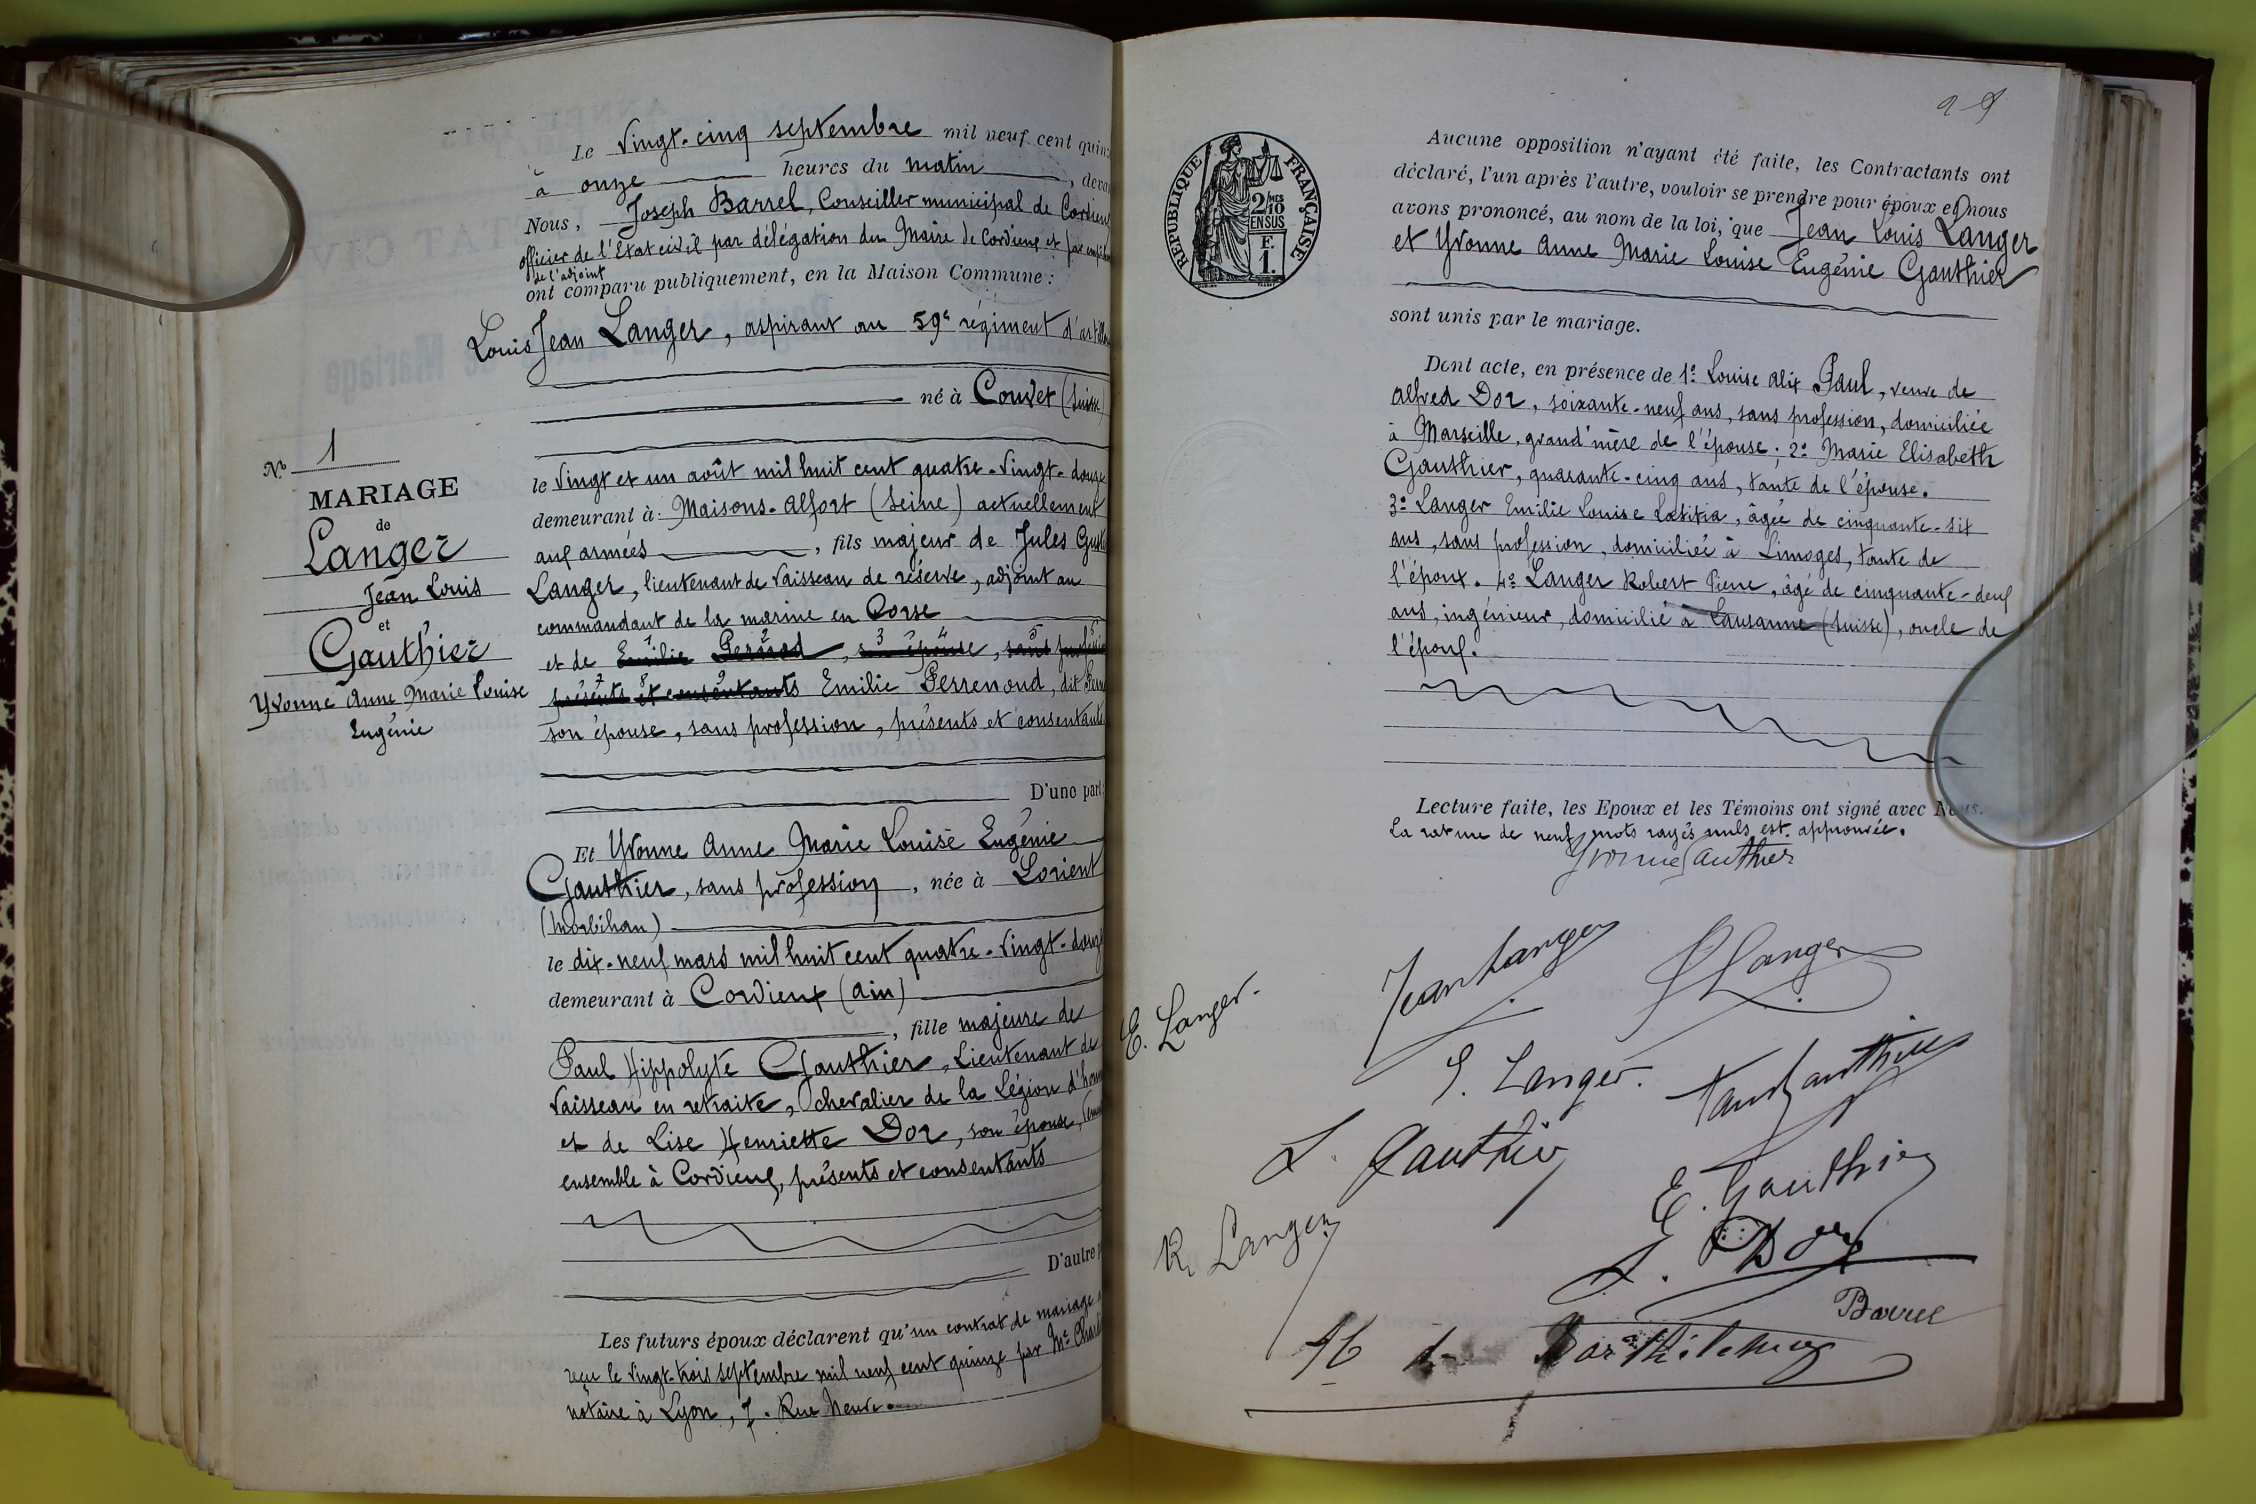 Le Vingt-cinq septembre mil neuf cent quinz
à onze heures du matin, deva
Nous, Joseph Barrel, Conseiller municipal de Cordieux
officier de l'Etat civil par délégation du Maire de Cordieux et par
de l'adjoint
ont comparu publiquement, en la Maison Commune :
Louis Jean Langer, aspirant au 59e régiment d'artille
né à Couvet (Suisse)
No 1
MARIAGE
de
Langer
Jean Louis
et
Gauthier
Yvonne Anne Marie Louise
Eugénie
le Vingt et un août mil huit cent quatre-vingt-douze
demeurant à Maisons-Alfort (Seine) actuellement
aux armées, fils majeur de Jules
Langer, lieutenant de vaisseau de réserve, adjoint au
commandant de la marine en Corse
1 2 3 4 5
et de Emilie, son épouse, sans
7 8 9
présents et consentants Emilie Perrenoud, dit
son épouse, sans profession, présents et consentants
D'une part
Et Yvonne Anne Marie Louise Eugénie
Gauthier, sans profession, née à Lorient
(Morbihan)
le dix-neuf mars mil huit cent quatre-vingt-douze
demeurant à Cordieux (Ain)
, fille majeure de
Paul Hippolyte Gauthier, Lieutenant de
Vaisseau en retraite, chevalier de la Légion d'hon
et de Lise Henriette Dor, son épouse,
ensemble à Cordieux, présents et consentants
D'autre p
Les futurs époux déclarent qu'un contrat de mariage
reçu le vingt-trois septembre mil neuf cent quinze par Me
notaire à Lyon, 7. Rue Neuve.
RÉPUBLIQUE FRANÇAISE
2/10 MES
EN SUS
F.
1.
Aucune opposition n'ayant été faite, les Contractants ont
déclaré, l'un après l'autre, vouloir se prendre pour époux et nous
avons prononcé, au nom de la loi, que Jean Louis Langer
et Yvonne Anne Marie Louise Eugénie Gauthier
sont unis par le mariage.
Dont acte, en présence de 1o Louise Alix Paul, veuve de
Alfred Dor, soixante-neuf ans, sans profession, domiciliée
à Marseille, grand'mère de l'épouse; 2o Marie Elisabeth
Gauthier, quarante-cinq ans, tante de l'épouse.
3o Langer Emilie Louise Lætitia, âgée de cinquante-six
ans, sans profession, domiciliée à Limoges, tante de
l'époux. 4o Langer Robert Pierre, âgé de cinquante-deux
ans, ingénieur, domicilié à Lausanne (Suisse), oncle de
l'époux.
Lecture faite, les Epoux et les Témoins ont signé avec Nous.
La rature de neuf mots rayés nuls est approuvée.
Yvonne Gauthier
Jean Langer
Langer
E. Langer.
Langer.
Gauthier
L. Gauthier
E. Gauthier
R. Langer
L. Dor
Barrel